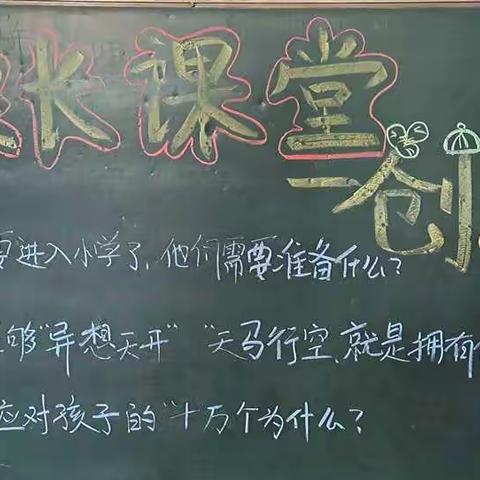 长课堂
一创
要进入小学了,他们需要准备什么?
够"异想天开""天马行空,就是拥有
应对孩子的"十万个为什么?